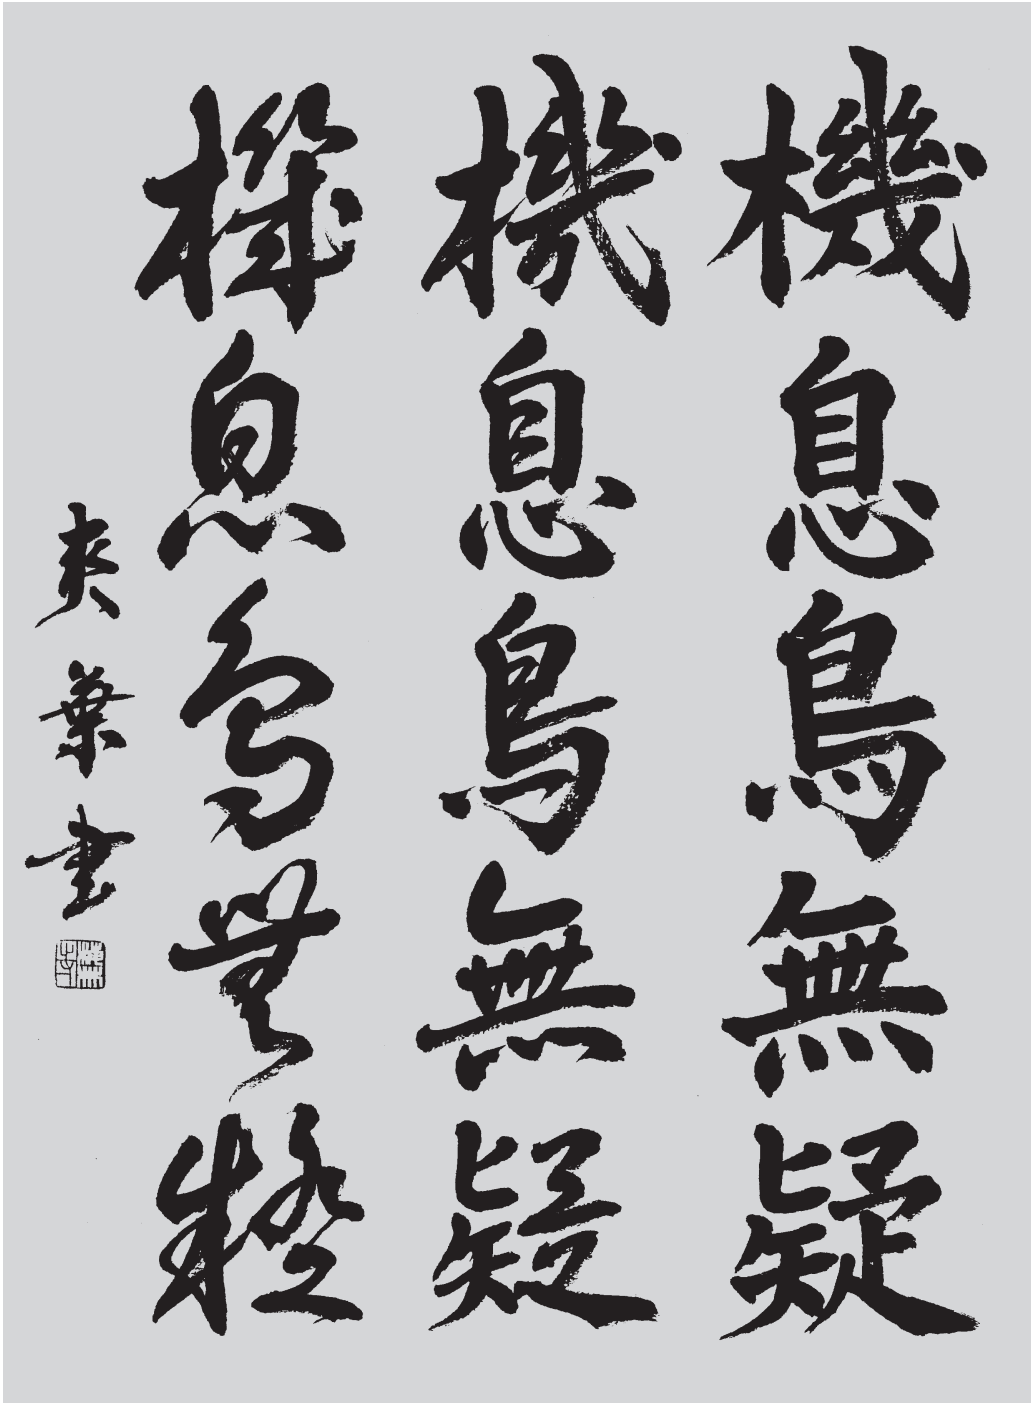 機息鳥無疑
機息鳥無疑
機息鳥無疑
爽葉書